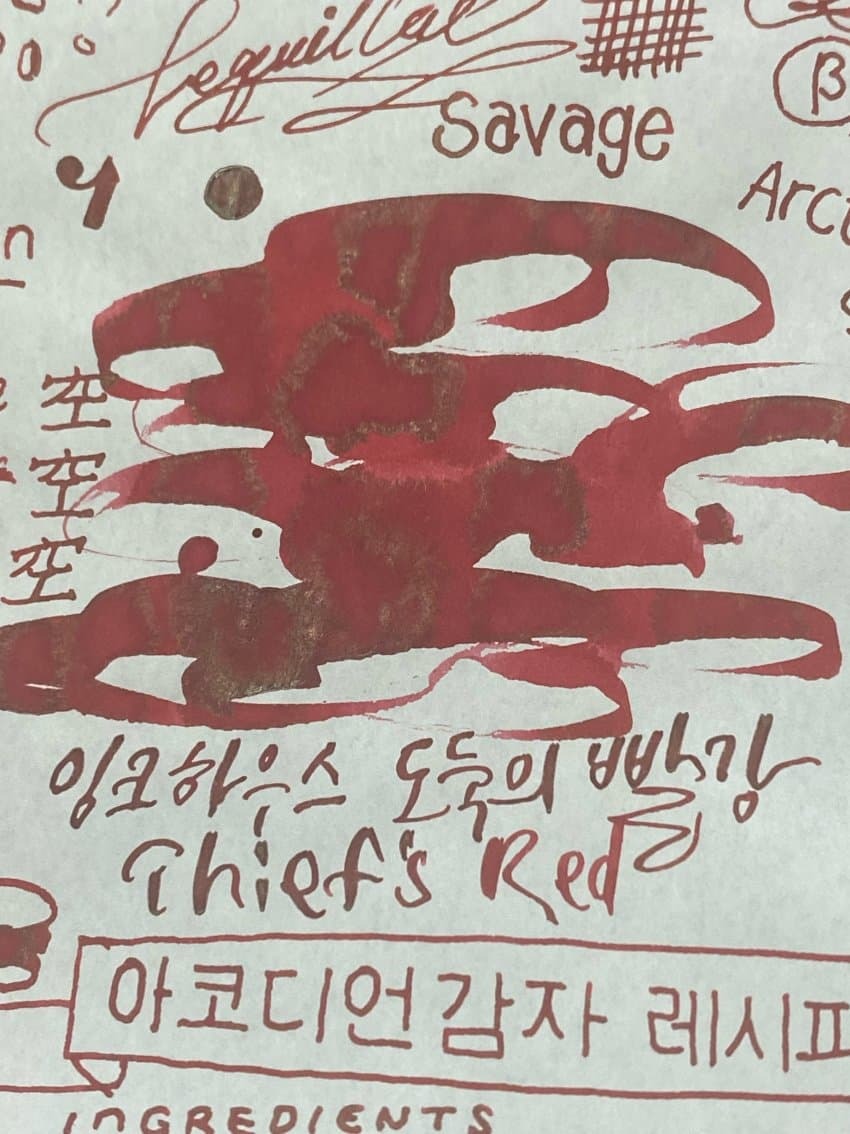 Savage
β
잉크하우스 도둑의 빨강
Thief's Red
아코디언감자 레시피
inGREDIENTS